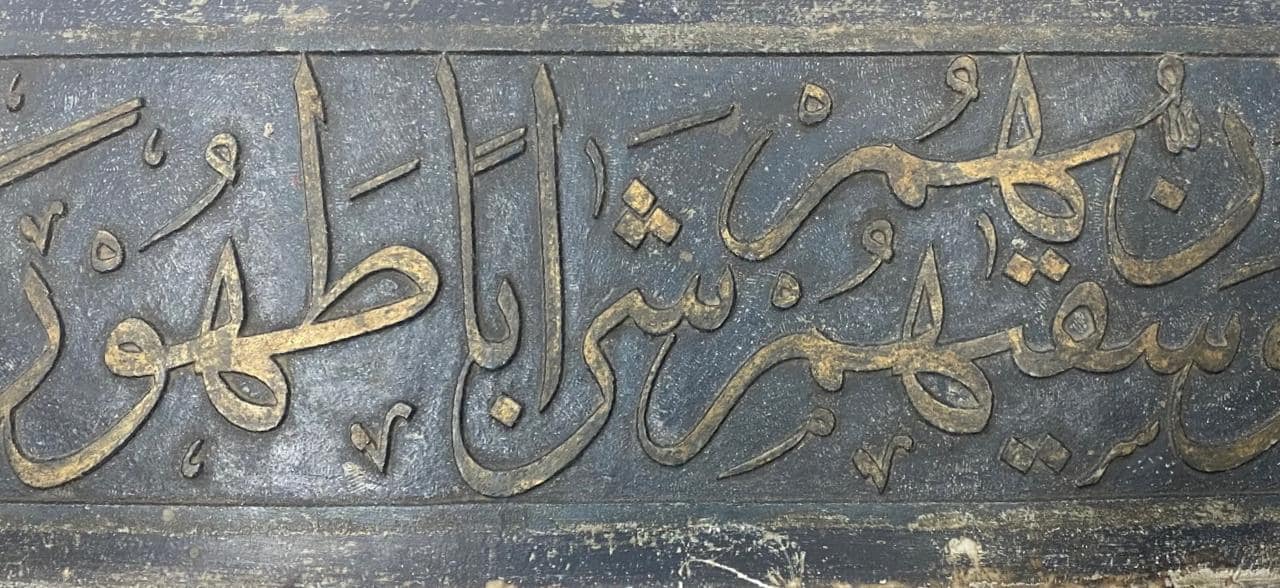 وسقيهم ربهم شرابا طهور